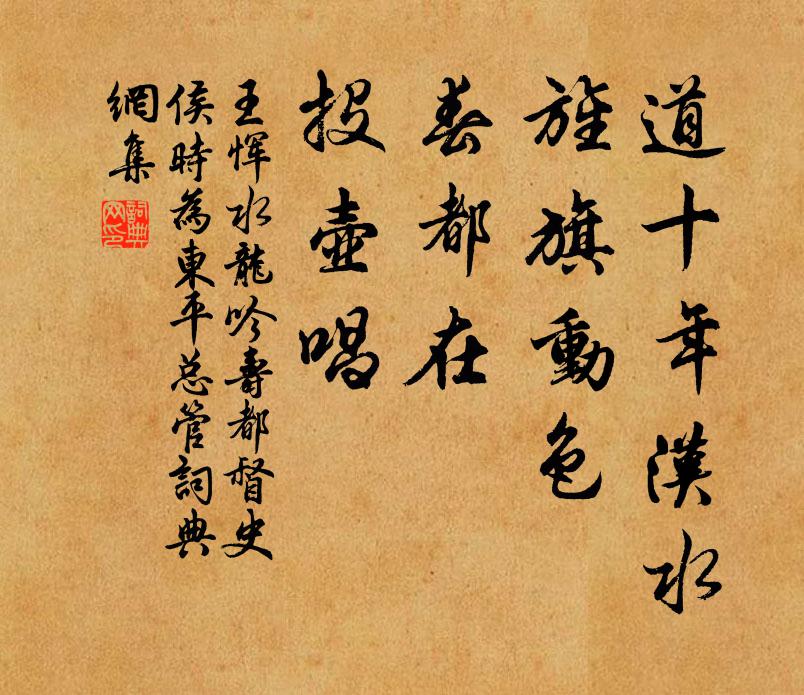 道十年漢水
旌旗動色
春都在
投壺唱
王惲水龍吟壽都督史
侯時為東平总管詞典
網集
詞典網印